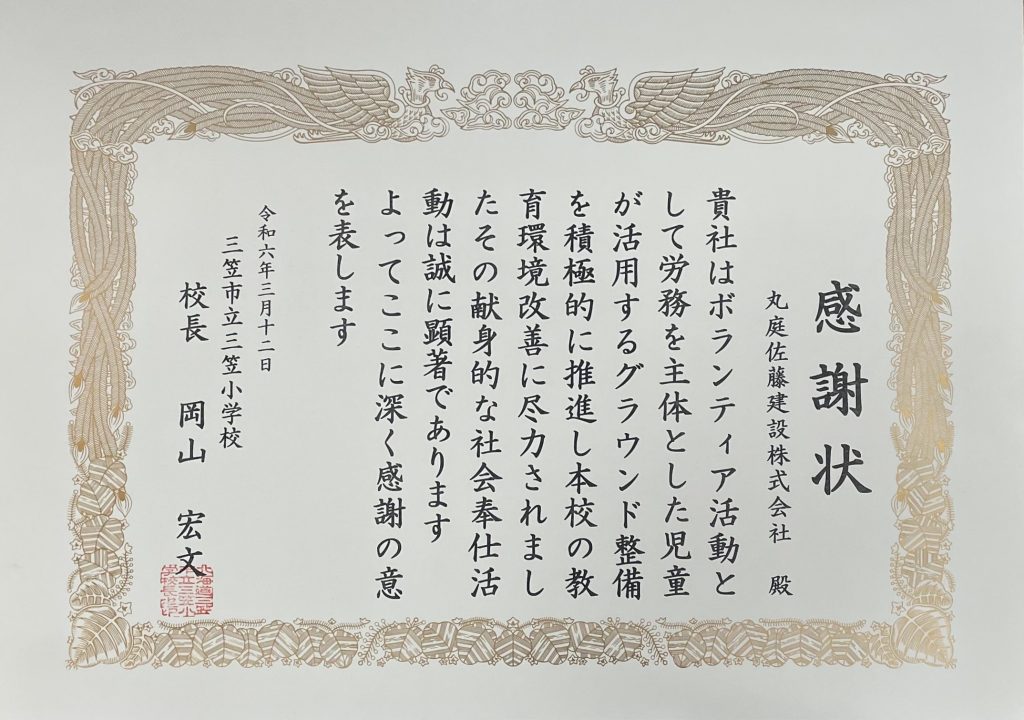 感謝状
丸庭佐藤建設株式会社 殿
貴社はボランティア活動と
して労務を主体とした児童
が活用するグラウンド整備
を積極的に推進し本校の教
育環境改善に尽力されまし
たその献身的な社会奉仕活
動は誠に顕著であります
よってここに深く感謝の意
を表します
令和六年三月十二日
三笠市立三笠小学校
校長 岡山 宏文